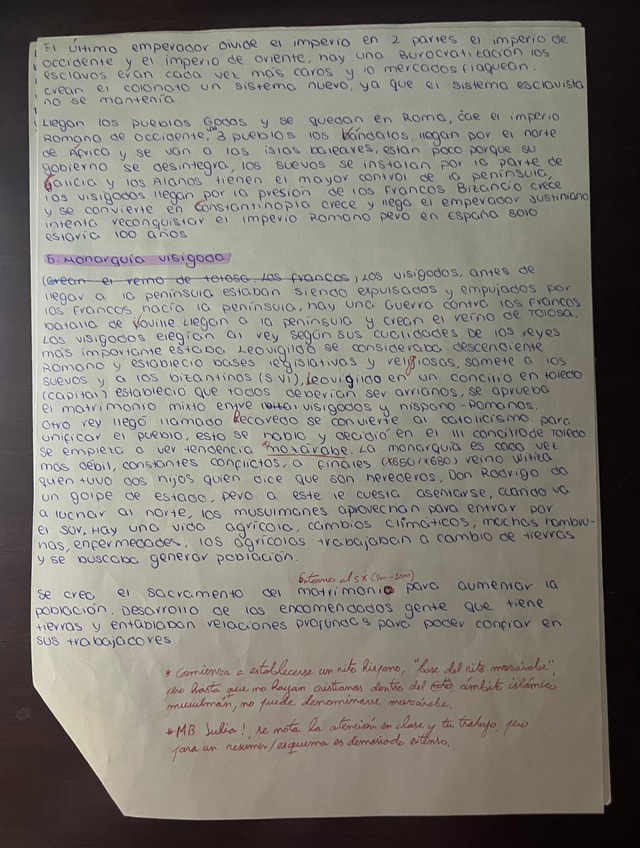 El Último emperador divide el imperio en 2 partes el imperio de
occidente y el imperio de oriente, hay una Burocratización los
esclavos eran cada vez más caros y lo mercados flaquean.
crean el colonato un sistema nuevo, ya que el sistema esclavista
no se mantenía
Llegan los pueblos Godos y se quedan en Roma, cae el imperio
Romano de occidente, 3 pueblos los Vándalos, llegan por el norte
de África y se van a las islas baleares, están poco porque su
gobierno se desintegra, los suevos se instalan por la parte de
Galicia y los Alanos tienen el mayor control de la península,
los visigodos llegan por la presión de los francos. Bizancio crece
y se convierte en Constantinopla crece y llega el emperador Justiniano
intenta reconquistar el imperio Romano pero en España solo
estaría 100 años
5. Monarquía visigoda
(Crean el reino de tolosa los francos), Los visigodos, antes de
llegar a la península estaban siendo expulsados y empujados por
los francos hacía la península, hay una Guerra contra los francos
batalla de Vouille llegan a la península y crean el reino de Tolosa.
Los visigodos elegían al rey según sus cualidades De los reyes
más importante estaba Leovigildo se consideraba descendiente
Romano y estableció bases legislativas y religiosas, somete a los
suevos y a los bizantinos (S.VI), Leovigildo en un concilio en toledo
(capital) estableció que todos deberían ser arrianos, se aprueba
el matrimonio mixto entre visigodos y hispano-Romanos.
Otro rey llegó llamado Recaredo se convierte al catolicismo para
unificar el pueblo, esto se hablo y decidió en el III concilio de Toledo.
Se empieza a ver tendencia *mozárabe. La monarquía es cada vez
más débil, constantes conflictos, a finales (X650/X680) reino Witiza
quien tuvo dos hijos quien dice que son herederos, Don Rodrigo da
un golpe de estado, pero a este le cuesta asentarse, cuando va
a luchar al norte, los musulmanes aprovechan para entrar por
el sur. Hay una vida agrícola, cambios climáticos, muchas hambru-
nas, enfermedades, los agrícolas trabajaban a cambio de tierras
y se buscaba generar población.
Entorno al s X (900-1000)
Se creo el sacramento del matrimonio para aumentar la
población. Desarrollo de las encomendados gente que tiene
tierras y entablaban relaciones profundas para poder confiar en
sus trabajadores.
* Comienza a establecerse un rito hispano, "base del rito mozárabe",
pero hasta que no hayan cristianos dentro del ámbito islámico
musulmán, no puede denominarse mozárabe.
* MB Julia!, se nota la atención en clase y tu trabajo, pero
para un resumen/esquema es demasiado extenso.